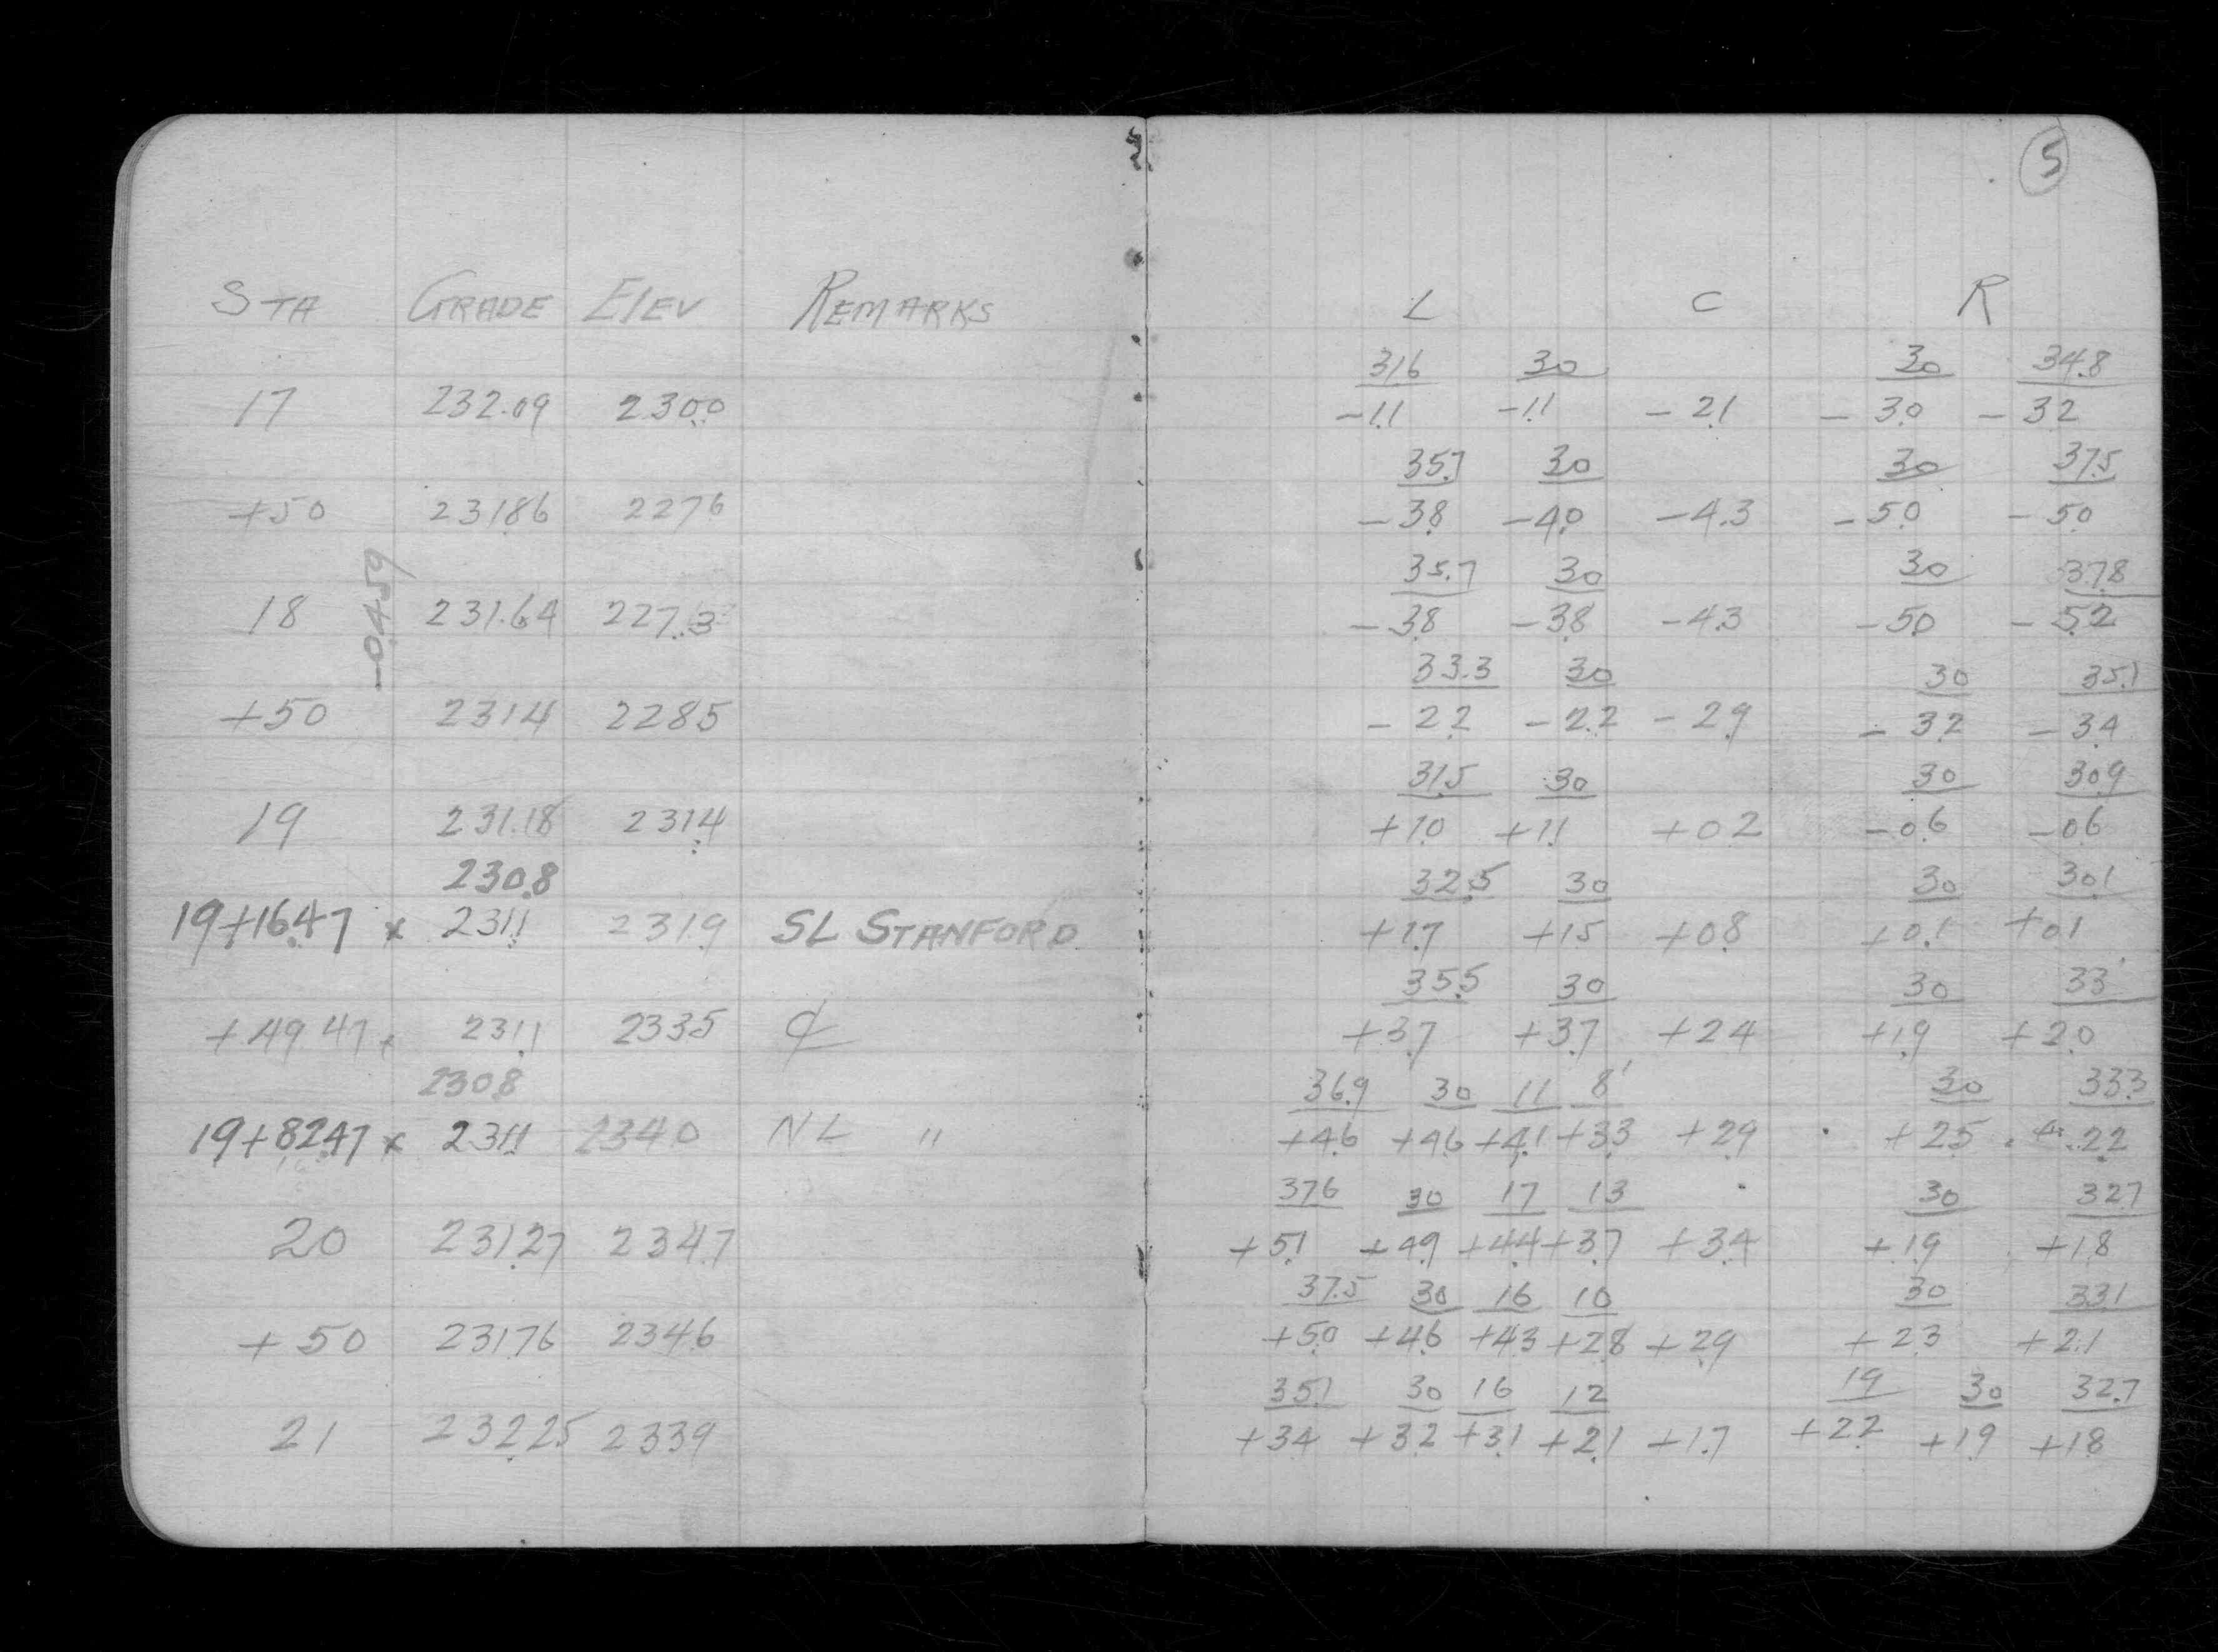 5
STA GRADE ELEV REMARKS L C R
31.6 30 30 34.8
17 232.09 230.0 -1.1 -1.1 -2.1 -3.0 -3.2
35.7 30 30 37.5
+50 231.86 227.6 -3.8 -4.0 -4.3 -5.0 -5.0
-0.459
35.7 30 30 37.8
18 231.64 227.3 -3.8 -3.8 -4.3 -5.0 -5.2
33.3 30 30 35.1
+50 231.4 228.5 -2.2 -2.2 -2.9 -3.2 -3.4
31.5 30 30 30.9
19 231.18 231.4 +1.0 +1.1 +0.2 -0.6 -0.6
230.8 32.5 30 30 30.1
19+16.47 x 231.1 231.9 SL STANFORD +1.7 +1.5 +0.8 +0.1 +0.1
35.5 30 30 33
+49.47 x 231.1 233.5 ₵ +3.7 +3.7 +2.4 +1.9 +2.0
230.8 36.9 30 11 8' 30 33.3
19+82.47 x 231.1 234.0 NL " +4.6 +4.6 +4.1 +3.3 +2.9 +2.5 +2.2
37.6 30 17 13 30 32.7
20 231.27 234.7 +5.1 +4.9 +4.4 +3.7 +3.4 +1.9 +1.8
37.5 30 16 10 30 33.1
+50 231.76 234.6 +5.0 +4.6 +4.3 +2.8 +2.9 +2.3 +2.1
35.1 30 16 12 19 30 32.7
21 232.25 233.9 +3.4 +3.2 +3.1 +2.1 +1.7 +2.2 +1.9 +1.8